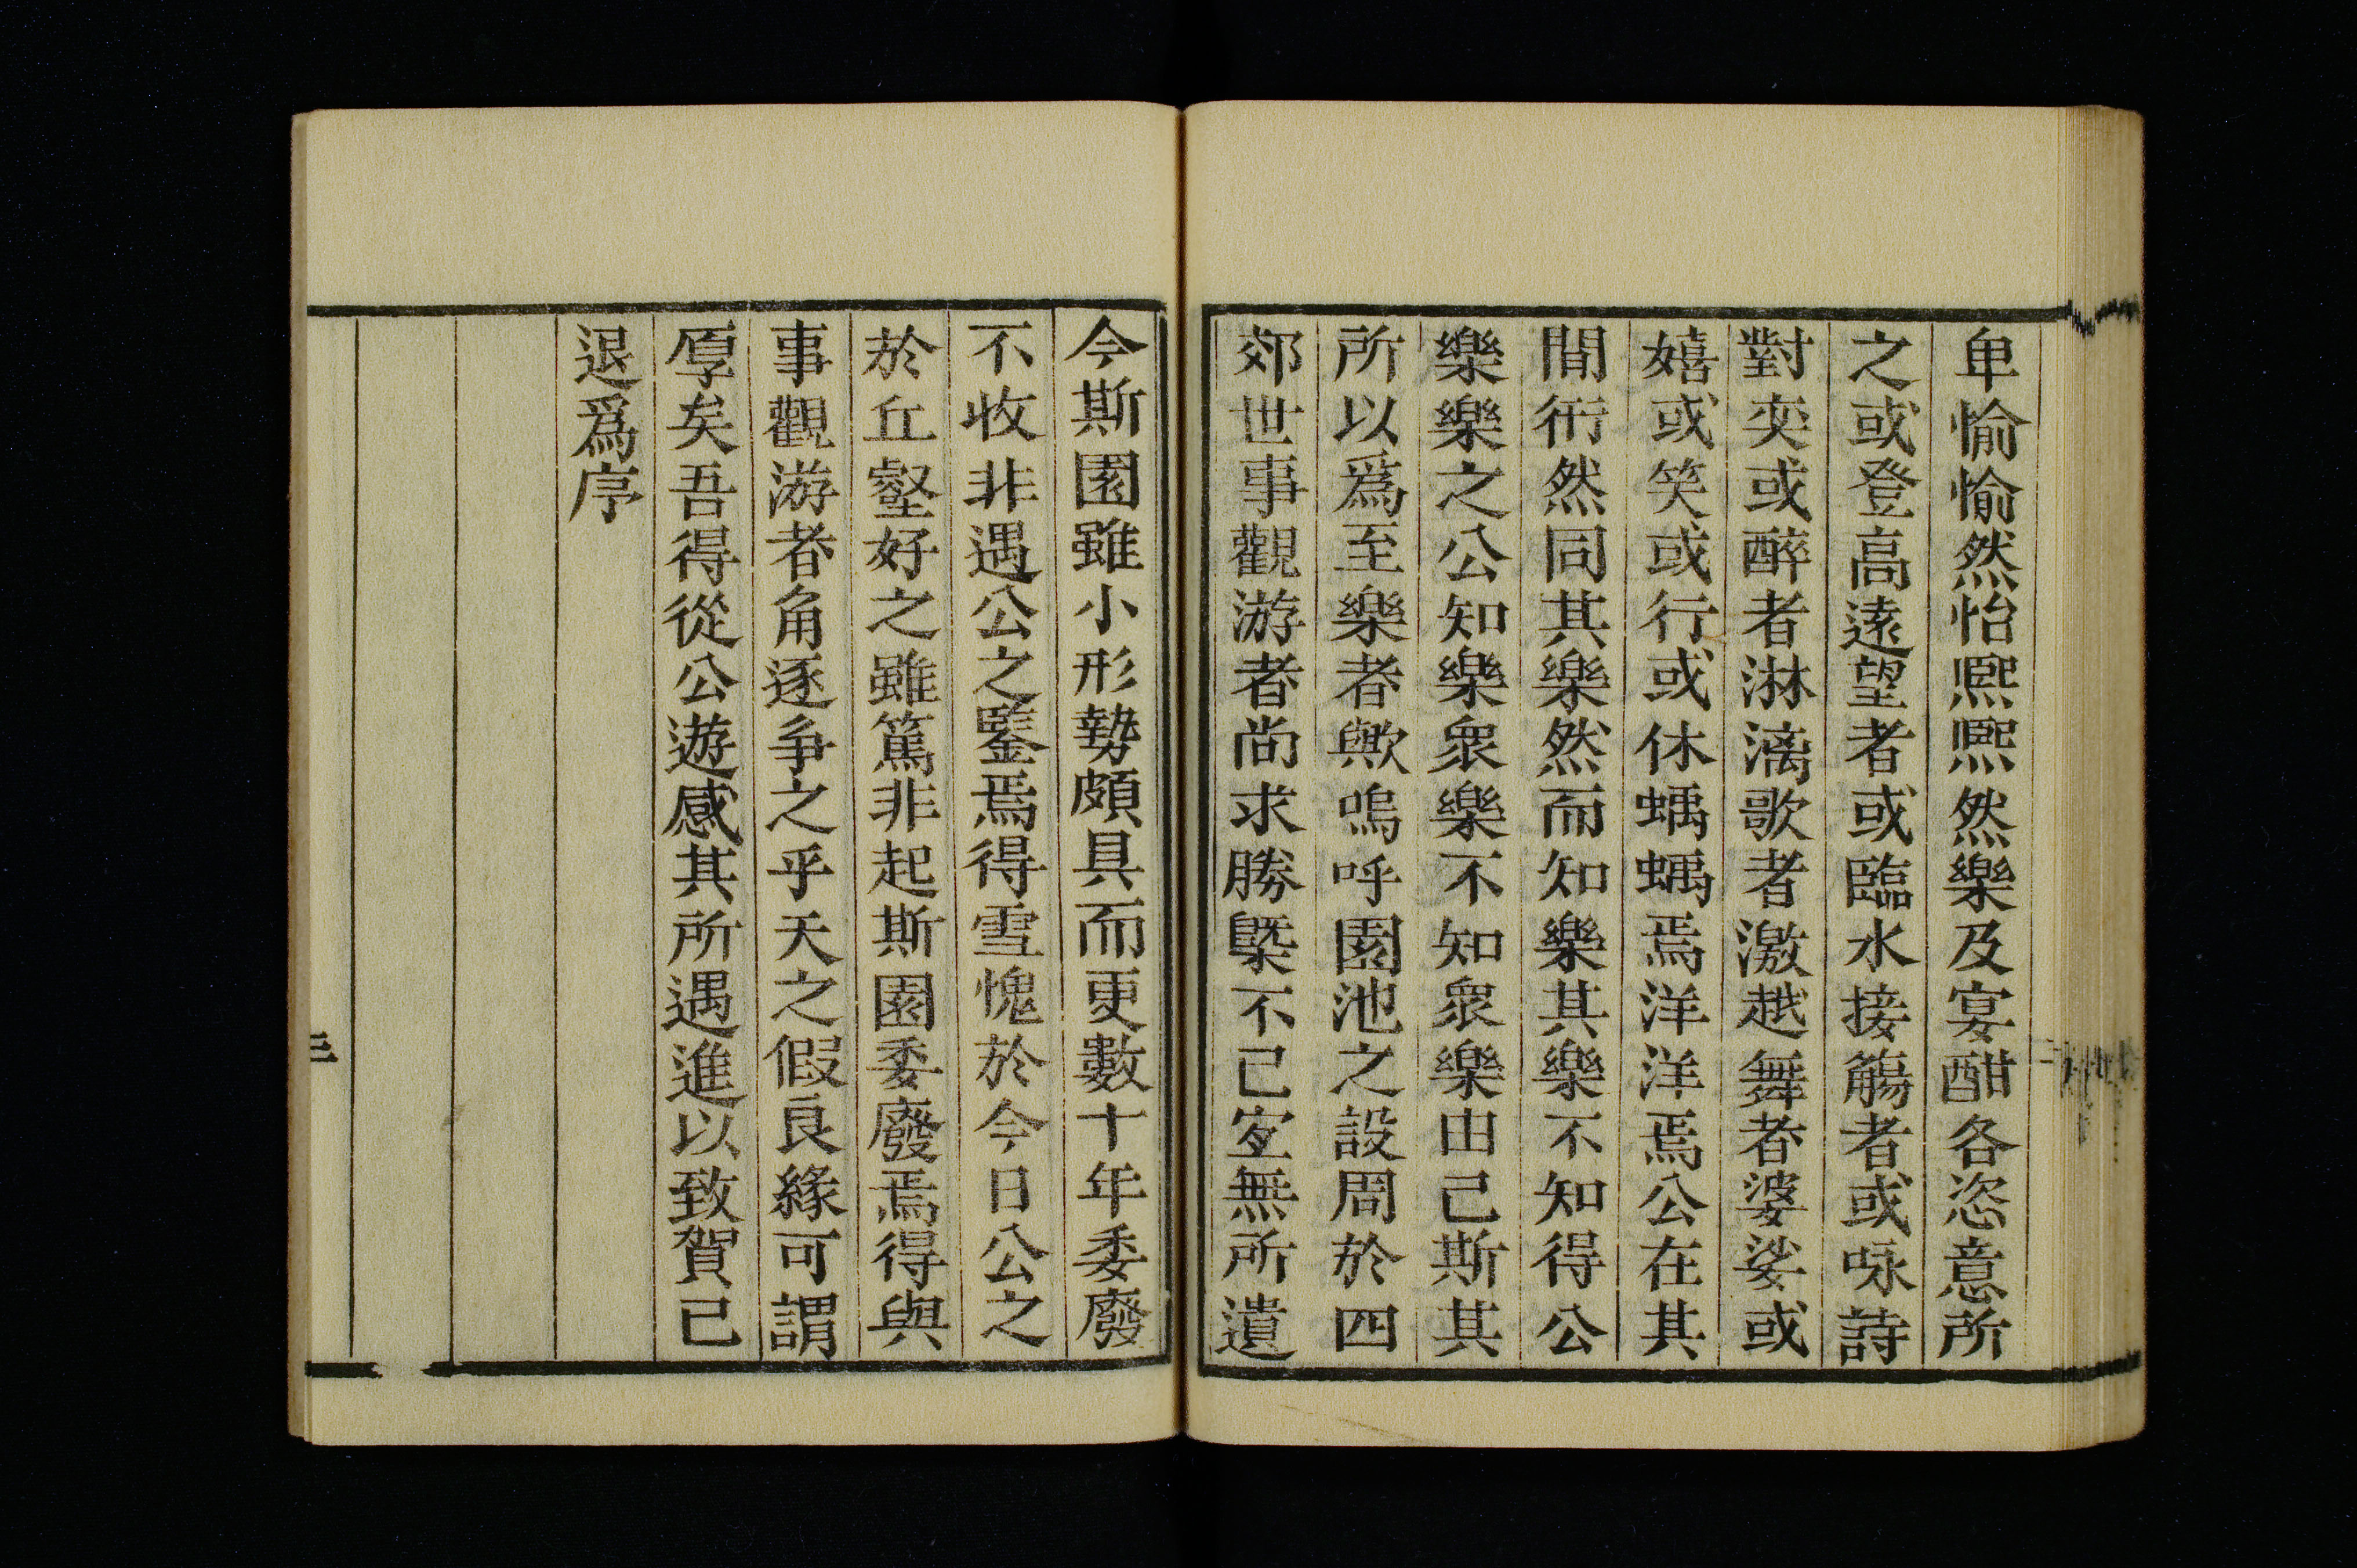 卑愉愉然怡熈熈然樂及宴酣各恣意所
之或登高遠望者或臨水接觴者或咏詩
對奕或醉者淋漓歌者激越舞者婆娑或
嬉或笑或行或休蝺蝺焉洋洋焉公在其
間衎然同其樂然而知樂其樂不知得公
樂樂之公知樂衆樂不知衆樂由己斯其
所以爲至樂者歟嗚呼園池之設周於四
郊世事觀游者尚求勝槩不已寔無所遺
今斯園雖小形勢頗具而更數十年委廢
不收非遇公之鑒焉得雪愧於今日公之
於丘壑好之雖篤非起斯園委廢焉得與
事觀游者角逐爭之乎天之假良緣可謂
厚矣吾得從公遊感其所遇進以致賀已
退爲序
三